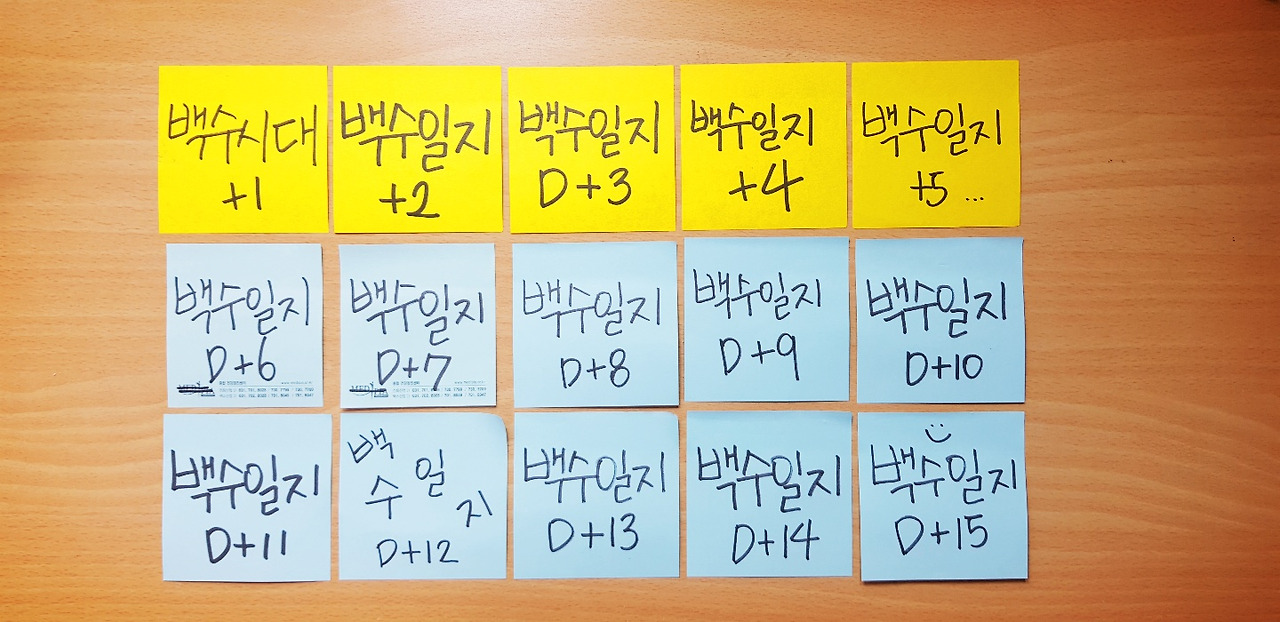 백수시대
+1
백수일지
+2
백수일지
D+3
백수일지
+4
백수일지
+5 ...
백수일지
D+6
백수일지
D+7
백수일지
D+8
백수일지
D+9
백수일지
D+10
백수일지
D+11
백수일지
D+12
백수일지
D+13
백수일지
D+14
백수일지
D+15